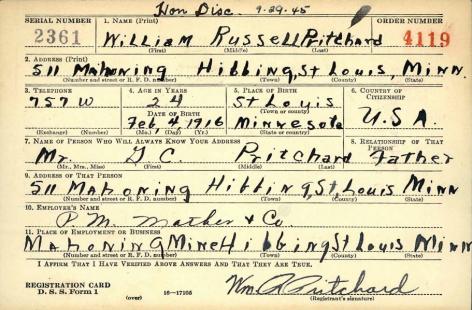 Hon Disc. 9-29-45
SERIAL NUMBER 1. NAME (Print) ORDER NUMBER
2361 William Russell Pritchard 4119
(First) (Middle) (Last)
2. ADDRESS (Print)
511 Mahoning Hibbing, St Louis, Minn.
(Number and street or R. F. D. number) (Town) (County) (State)
3. TELEPHONE 4. AGE IN YEARS 5. PLACE OF BIRTH 6. COUNTRY OF CITIZENSHIP
757 W 24 St Louis
(Town or county)
DATE OF BIRTH
Feb 4 1916 Minnesota U.S.A.
(Exchange) (Number) (Mo.) (Day) (Yr.) (State or country)
7. NAME OF PERSON WHO WILL ALWAYS KNOW YOUR ADDRESS 8. RELATIONSHIP OF THAT PERSON
Mr. C. Pritchard Father
(Mr., Mrs., Miss) (First) (Middle) (Last)
9. ADDRESS OF THAT PERSON
511 Mahoning Hibbing, St Louis Minn
(Number and street or R. F. D. number) (Town) (County) (State)
10. EMPLOYER'S NAME
P. M. Mather & Co
11. PLACE OF EMPLOYMENT OR BUSINESS
Mahoning Mine Hibbing St Louis Minn
(Number and street or R. F. D. number) (Town) (County) (State)
I AFFIRM THAT I HAVE VERIFIED ABOVE ANSWERS AND THAT THEY ARE TRUE.
REGISTRATION CARD
D. S. S. Form 1 (over) 16—17105 Wm R Pritchard
(Registrant's signature)